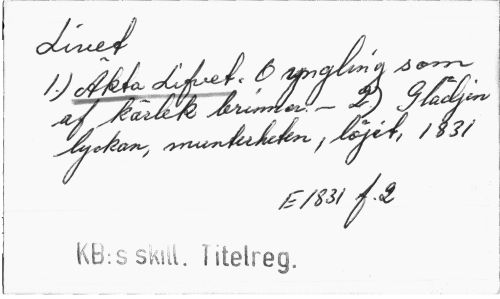 Livet
1.) Äkta Lifvet. O yngling som
af kärlek brinner. - 2) Glädjen
lyckan, munterheten, löjet, 1831
E 1831 f. 2
KB:s skill. Titelreg.